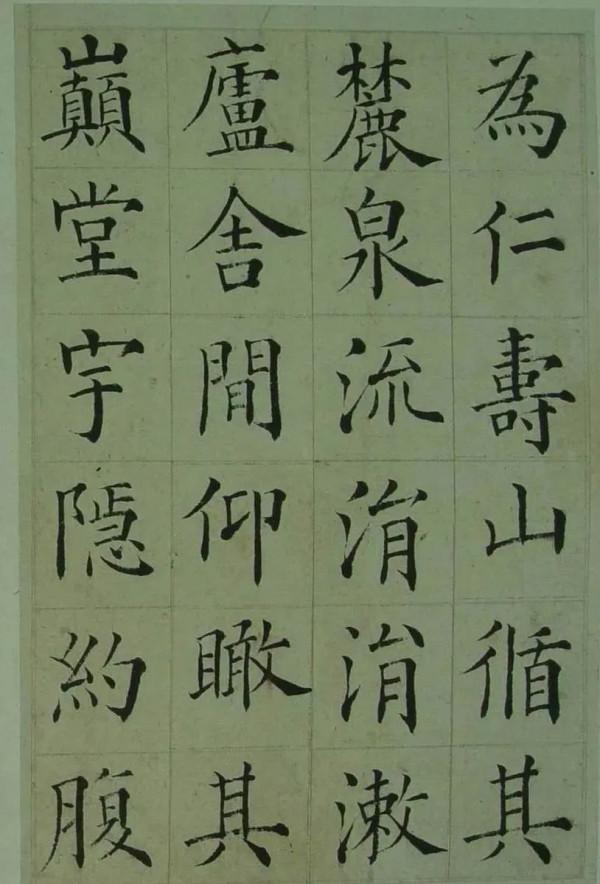 為仁壽山循其
麓泉流涓涓漱
廬舎間仰瞰其
巔堂宇隱約腹